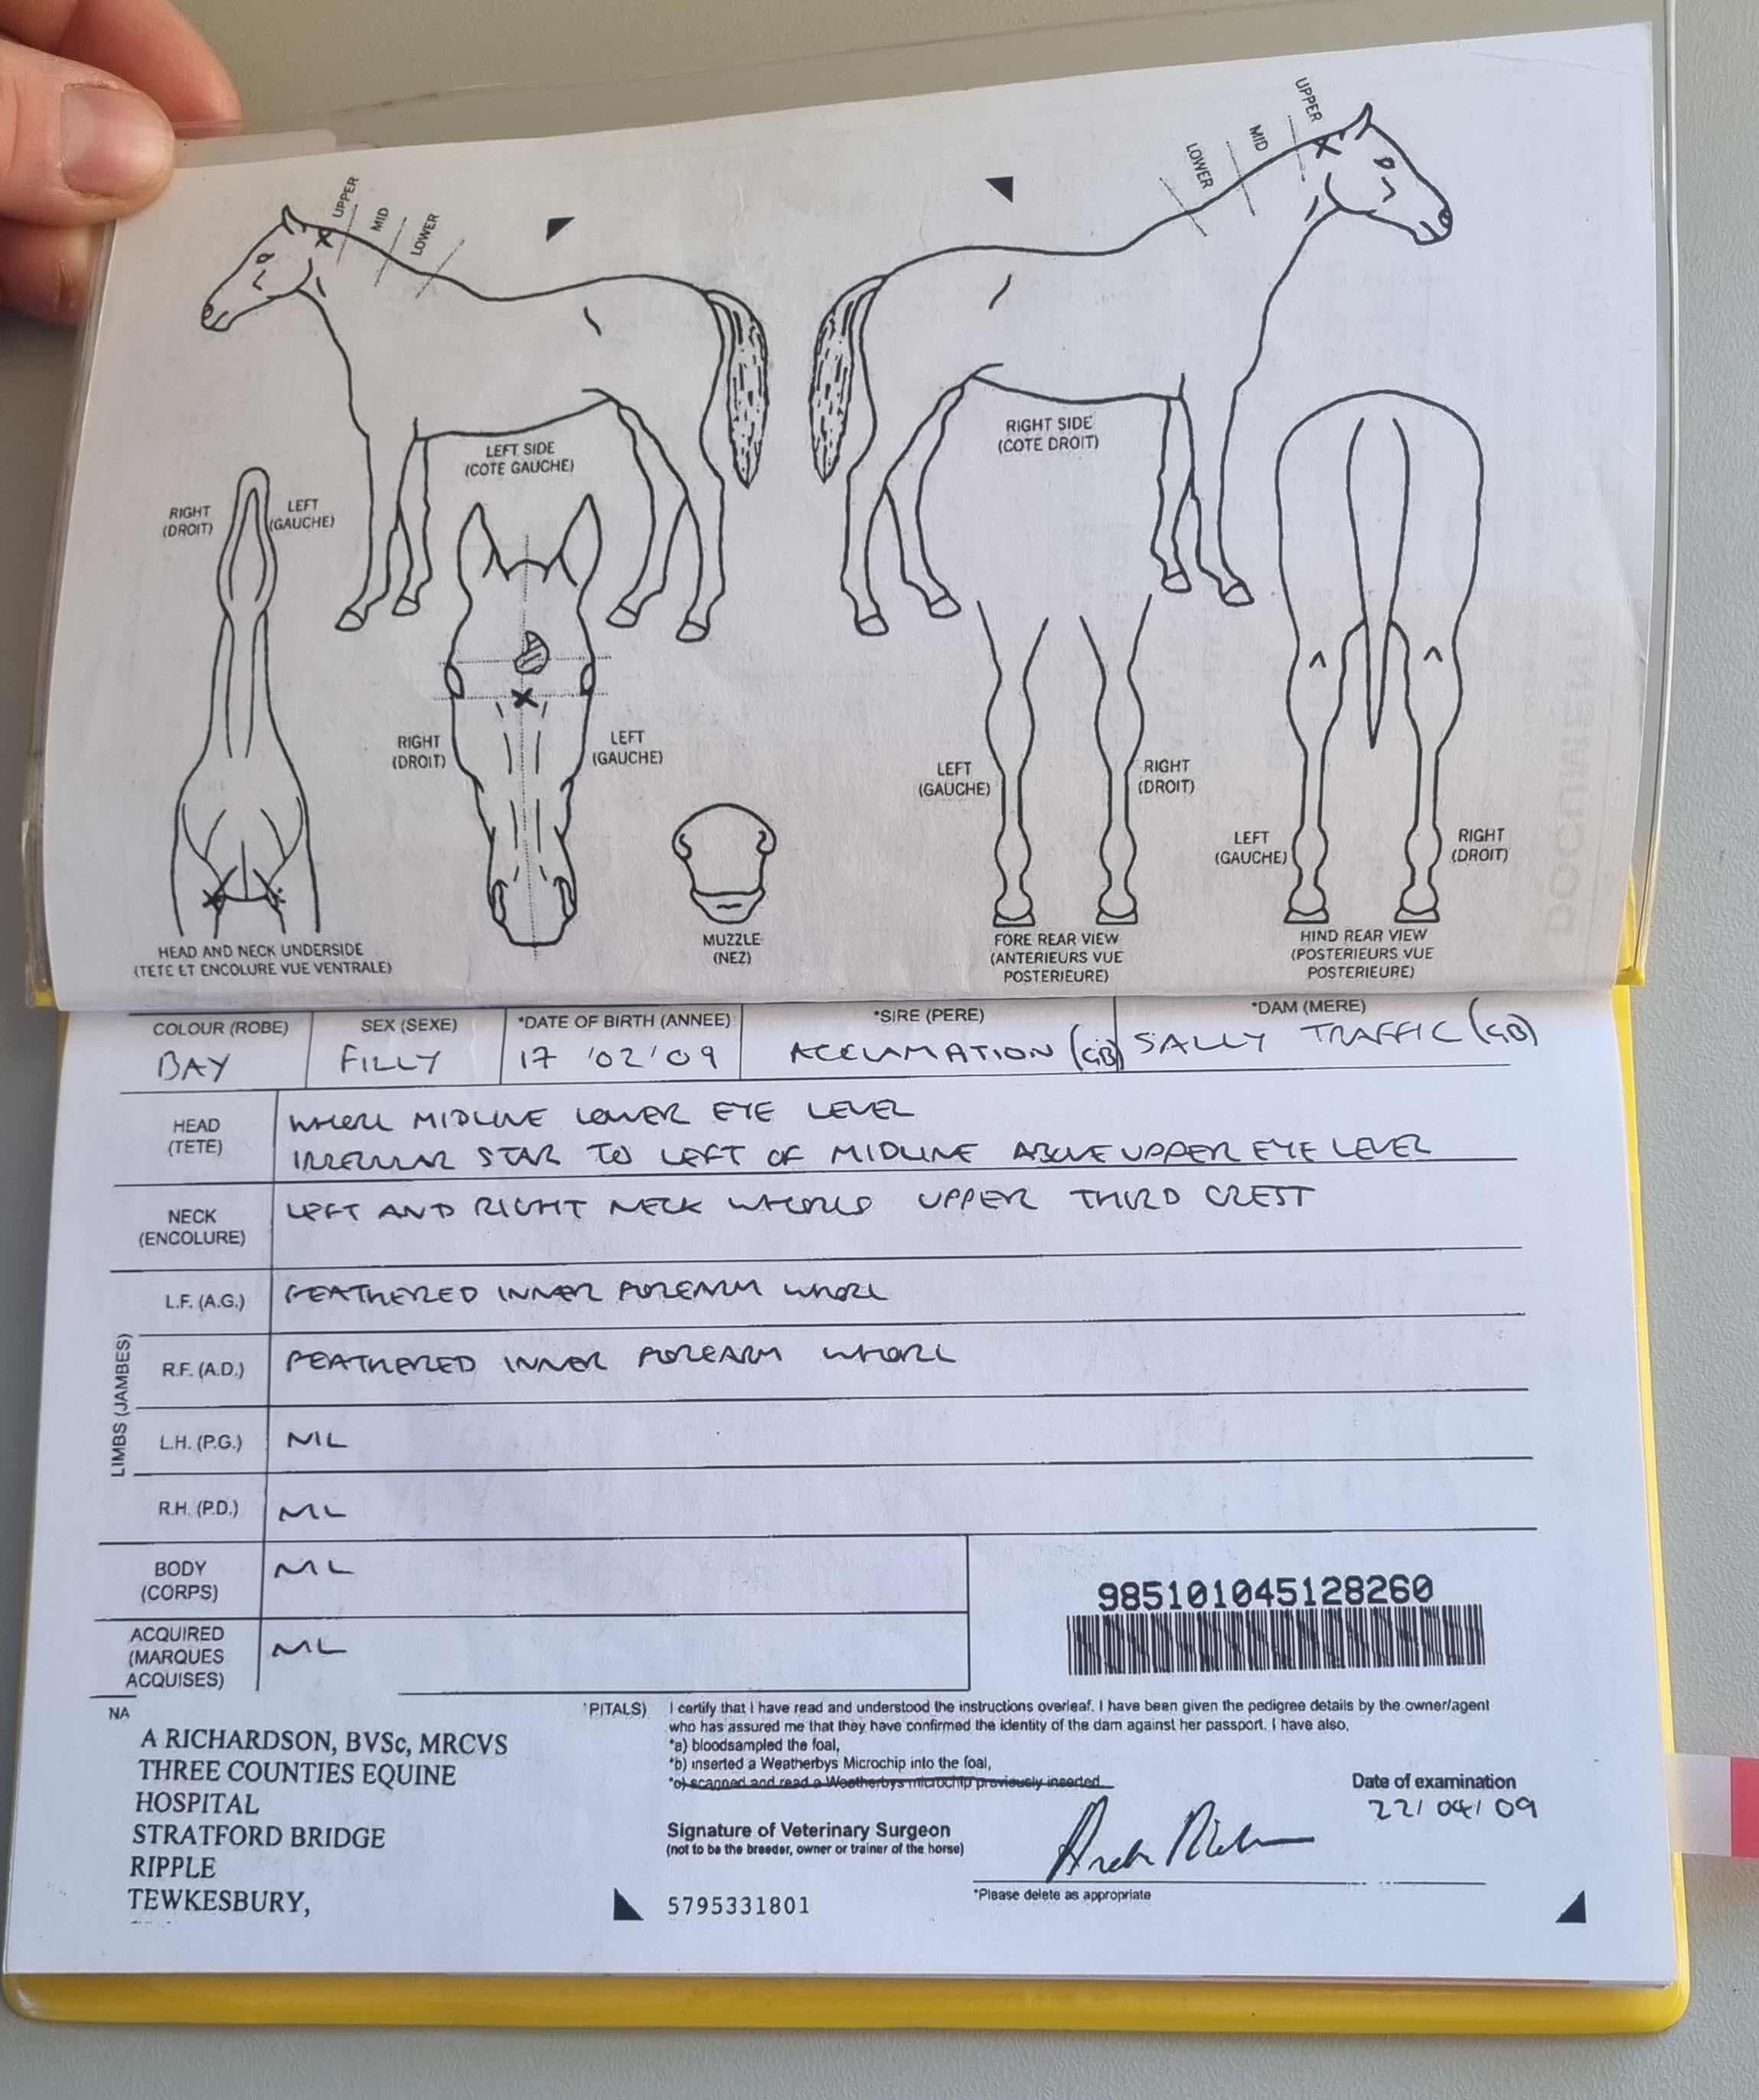 UPPER
MID
LOWER
UPPER
MID
LOWER
LEFT SIDE
(COTE GAUCHE)
RIGHT SIDE
(COTE DROIT)
RIGHT
(DROIT)
LEFT
(GAUCHE)
RIGHT
(DROIT)
LEFT
(GAUCHE)
LEFT
(GAUCHE)
RIGHT
(DROIT)
LEFT
(GAUCHE)
RIGHT
(DROIT)
HEAD AND NECK UNDERSIDE
(TETE ET ENCOLURE VUE VENTRALE)
MUZZLE
(NEZ)
FORE REAR VIEW
(ANTERIEURS VUE
POSTERIEURE)
HIND REAR VIEW
(POSTERIEURS VUE
POSTERIEURE)
COLOUR (ROBE)
BAY
SEX (SEXE)
FILLY
*DATE OF BIRTH (ANNEE)
17 '02'09
*SIRE (PERE)
ACCLAMATION (GB)
*DAM (MERE)
SALLY TRAFFIC (GB)
HEAD
(TETE)
WHORL MIDLINE LOWER EYE LEVEL
IRREGULAR STAR TO LEFT OF MIDLINE ABOVE UPPER EYE LEVEL
NECK
(ENCOLURE)
LEFT AND RIGHT NECK WHORLS UPPER THIRD CREST
LIMBS (JAMBES)
L.F. (A.G.)
FEATHERED INNER FOREARM WHORL
R.F. (A.D.)
FEATHERED INNER FOREARM WHORL
L.H. (P.G.)
NIL
R.H. (P.D.)
NIL
BODY
(CORPS)
NIL
ACQUIRED
(MARQUES
ACQUISES)
NIL
985101045128260
NA
A RICHARDSON, BVSc, MRCVS
THREE COUNTIES EQUINE
HOSPITAL
STRATFORD BRIDGE
RIPPLE
TEWKESBURY,
PITALS)
I certify that I have read and understood the instructions overleaf. I have been given the pedigree details by the owner/agent
who has assured me that they have confirmed the identity of the dam against her passport. I have also,
*a) bloodsampled the foal,
*b) inserted a Weatherbys Microchip into the foal,
*c) scanned and read a Weatherbys microchip previously inserted
Date of examination
22/04/09
Signature of Veterinary Surgeon
(not to be the breeder, owner or trainer of the horse)
*Please delete as appropriate
5795331801